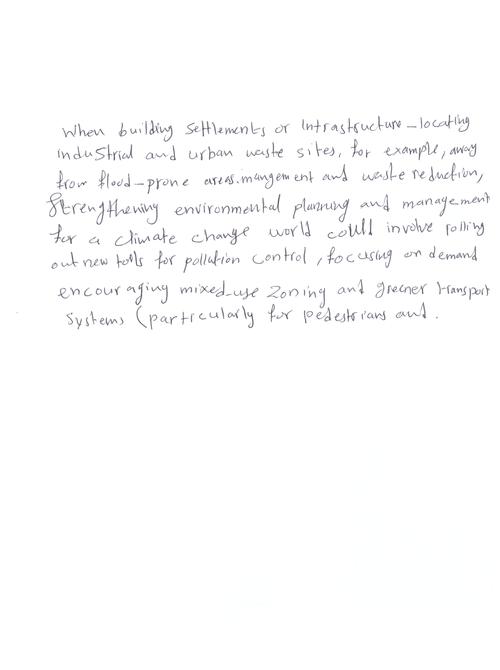 When building settlements or Intrastructure-locating
industrial and urban waste sites, for example, away
from flood-prone areas.mangement and waste reduction,
Strengthening environmental planning and management
for a climate change world could involve rolling
out new tolls for pollution control, focusing on demand
encouraging mixed-use zoning and greener transport
systems (particularly for pedestrians and.